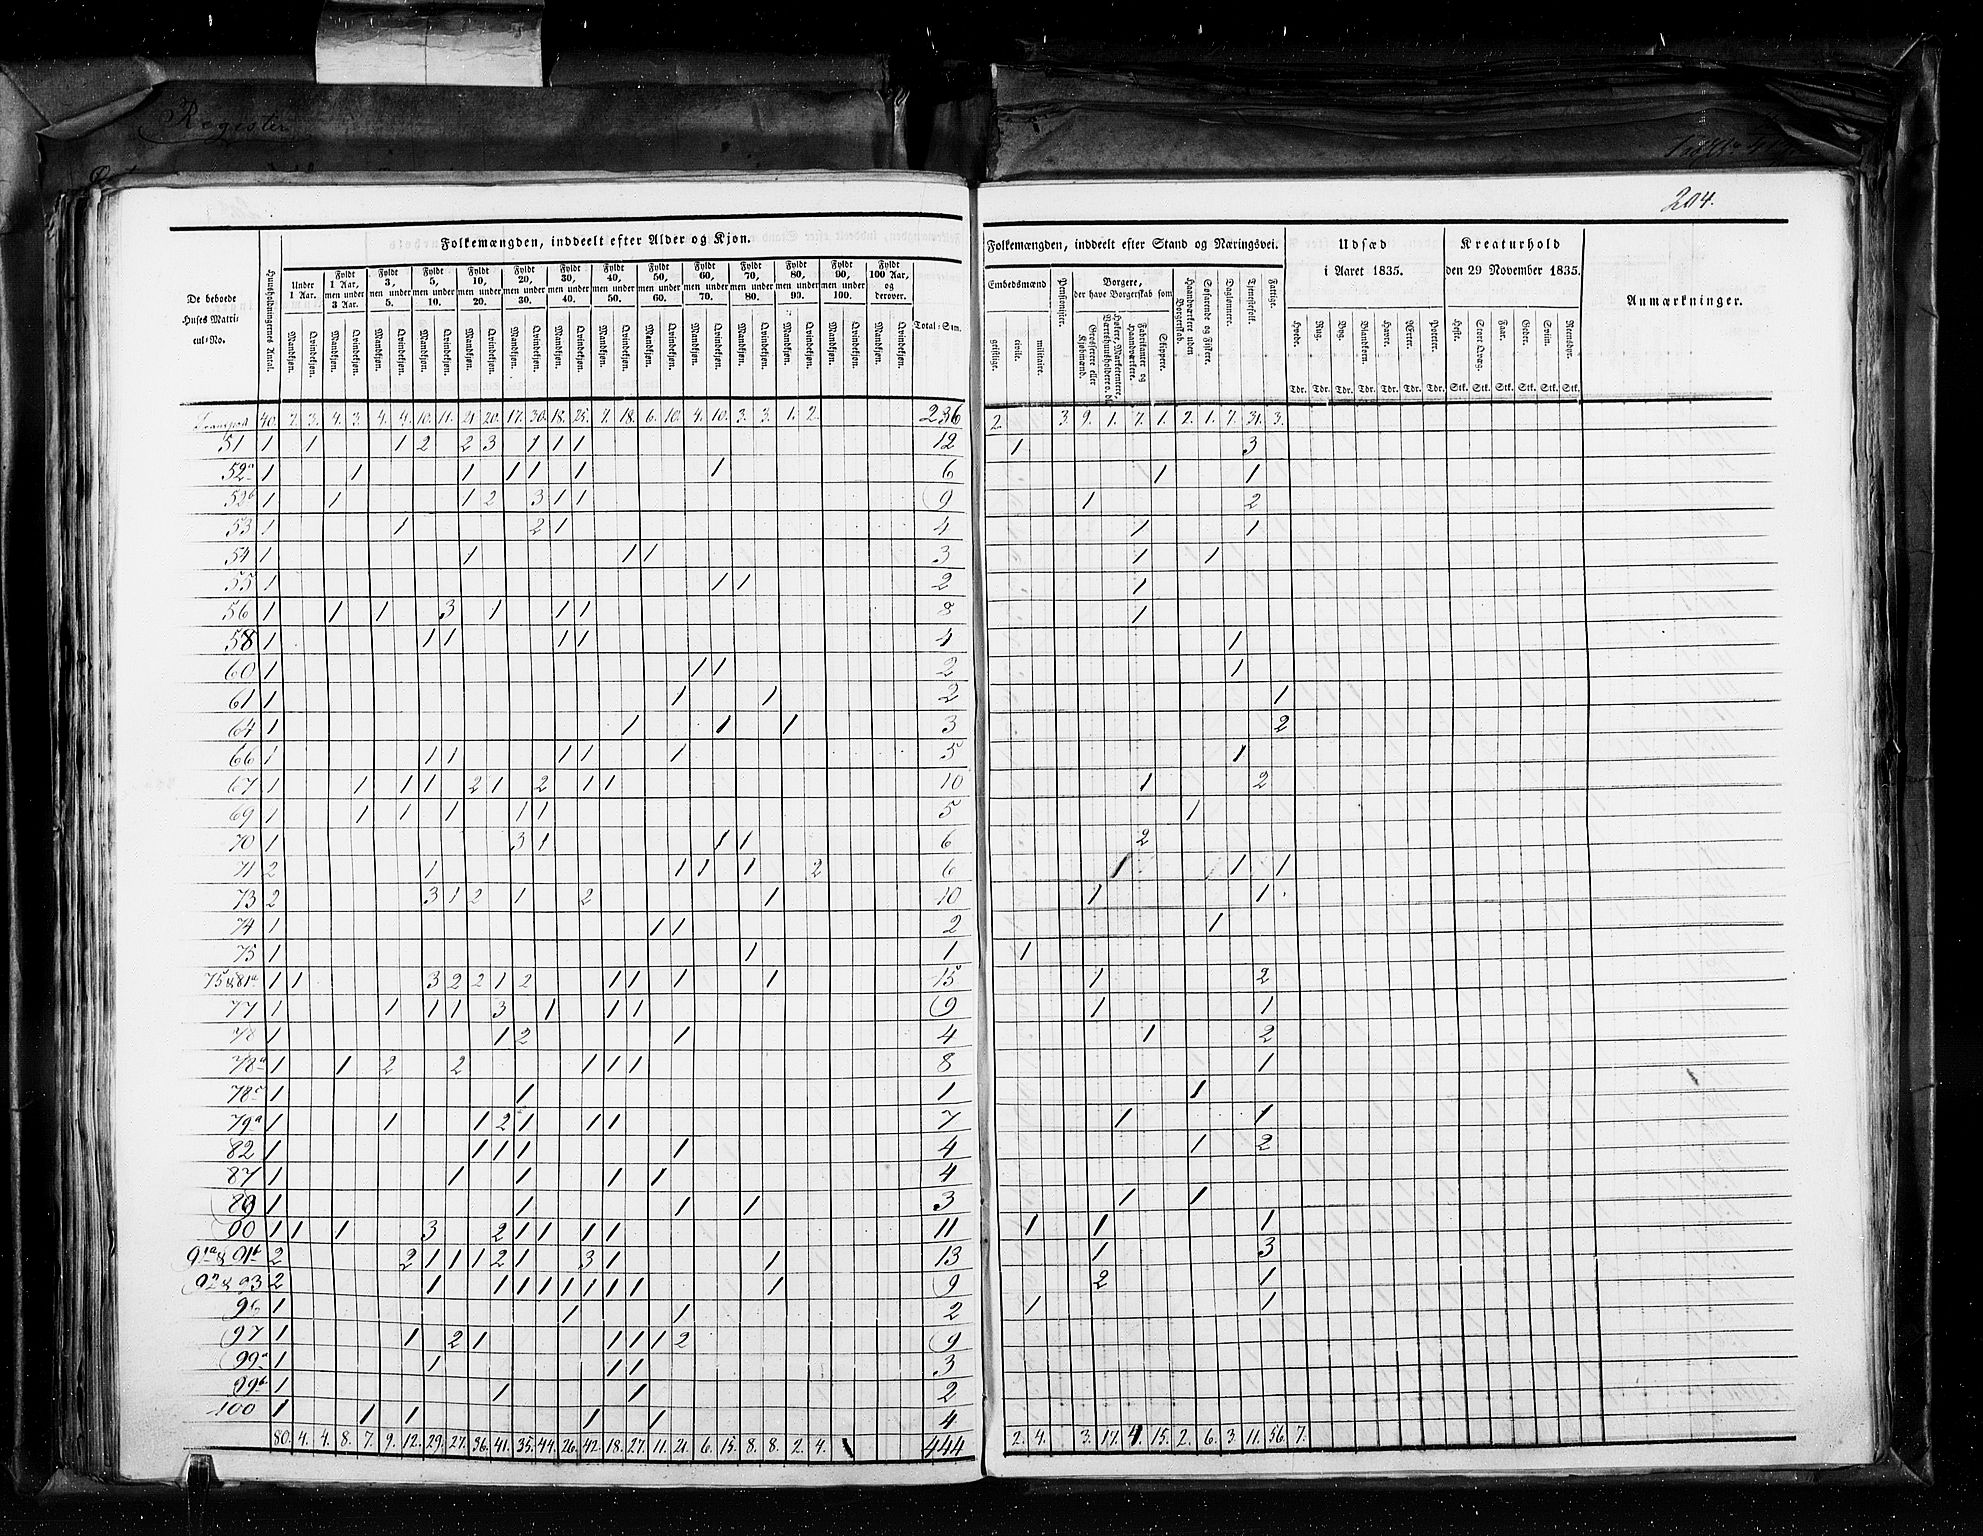 Register
204.
Folkemængden, inddeelt efter Alder og Kjøn.
De beboede Huses Matricul-No.
Huusholdningernes Antal.
Under 1 Aar.
Fyldt 1 Aar, men under 3 Aar.
Fyldt 3, men under 5.
Fyldt 5, men under 10.
Fyldt 10, men under 20.
Fyldt 20, men under 30.
Fyldt 30, men under 40.
Fyldt 40, men under 50.
Fyldt 50, men under 60.
Fyldt 60, men under 70.
Fyldt 70, men under 80.
Fyldt 80, men under 90.
Fyldt 90, men under 100.
Fyldt 100 Aar, og derover.
Mandkjøn. Qvindekjøn. Mandkjøn. Qvindekjøn. Mandkjøn. Qvindekjøn. Mandkjøn. Qvindekjøn. Mandkjøn. Qvindekjøn. Mandkjøn. Qvindekjøn. Mandkjøn. Qvindekjøn. Mandkjøn. Qvindekjøn. Mandkjøn. Qvindekjøn. Mandkjøn. Qvindekjøn. Mandkjøn. Qvindekjøn. Mandkjøn. Qvindekjøn. Mandkjøn. Qvindekjøn. Mandkjøn. Qvindekjøn.
Total-Sum.
Transport 40. 2. 3. 4. 3. 4. 4. 10. 11. 21. 20. 17. 30. 18. 25. 7. 18. 6. 10. 4. 10. 3. 3. 1. 2. 236
51 1 1 1 2 2 3 1 1 1 12
52a 1 1 1 1 1 1 1 6
52b 1 1 1 2 3 1 1 9
53 1 1 2 1 4
54 1 1 1 1 3
55 1 1 1 2
56 1 1 1 3 1 1 1 8
58 1 1 1 1 1 4
60 1 1 1 2
61 1 1 1 2
64 1 1 1 1 3
66 1 1 1 1 1 1 5
67 1 1 1 1 2 1 2 1 1 10
69 1 1 1 1 1 1 5
70 1 3 1 1 1 6
71 2 1 1 1 1 2 6
73 2 3 1 2 1 2 1 10
74 1 1 1 2
75 1 1 1
75 & 81a 1 1 3 2 2 1 2 1 1 1 1 15
77 1 1 1 1 3 1 1 1 9
78 1 1 2 1 4
78a 1 1 2 2 1 1 1 8
78c 1 1 1
79a 1 1 1 2 1 1 1 7
82 1 1 1 1 1 4
87 1 1 1 1 1 4
89 1 1 1 1 3
90 1 1 1 3 2 1 1 1 1 11
91a & 91b 2 2 1 1 1 2 1 3 1 1 13
92 & 93 2 1 1 1 1 1 1 1 1 1 9
96 1 1 1 2
97 1 1 2 1 1 1 1 2 9
99a 1 1 1 1 3
99b 1 1 1 2
100 1 1 1 1 1 4
80. 4. 4. 8. 7. 9. 12. 29. 27. 36. 41. 35. 44. 26. 42. 18. 27. 11. 21. 6. 15. 8. 8. 2. 4. 444
Folkemængden, inddeelt efter Stand og Næringsvei.
Embedsmænd
geistlige. civile. militaire.
Pensionister.
Borgere, der have Borgerskab som
Grosserere eller Kjøbmænd.
Fabrikanter og Haandværkere.
Skippere.
Haandværkere uden Borgerskab.
Søfarende og Fiskere.
Daglønnere.
Tjenestefolk.
Fattige.
Udsæd i Aaret 1835.
Hvede. Rug. Byg. Blandkorn. Havre. Ærter. Poteter.
Tdr. Tdr. Tdr. Tdr. Tdr. Tdr. Tdr.
Kreaturhold den 29 November 1835.
Heste. Stort Qvæg. Faar. Geder. Sviin. Rensdyr.
Stk. Stk. Stk. Stk. Stk. Stk.
Anmærkninger.
2. 3. 9. 1. 7. 1. 2. 1. 7. 31. 3.
1 3
1 1
1 2
1 1
1 1
1
1
1
1
1
2
1
1 2
1
2
1 1 1
1 1
1
1
1 2
1 1
1 2
1
1
1 1
1 2
1 1
1 1 1
1 3
2 1
1 1
2. 4. 3. 17. 4. 15. 2. 6. 3. 11. 56. 7.